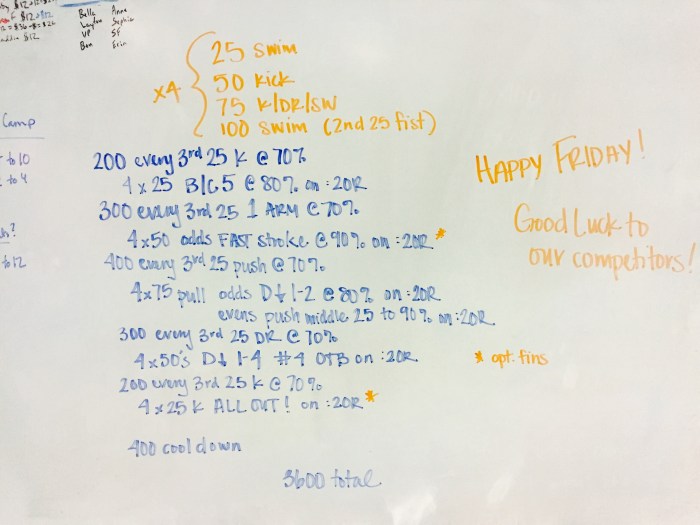 $12
Bella Anna
Layton Sophie
VP SF
Ben Erin
Camp
to 10
to 4
to 12
x4
25 swim
50 kick
75 K/DR/SW
100 swim (2nd 25 fist)
200 every 3rd 25 K @ 70%
4 x 25 B/C 5 @ 80% on :20R
300 every 3rd 25 1 ARM @ 70%
4x50 odds FAST stroke @ 90% on :20R *
400 every 3rd 25 push @ 70%
4x75 pull odds D↓ 1-2 @ 80% on :20R
evens push middle 25 to 90% on :20R
300 every 3rd 25 DR @ 70%
4x50's D↓ 1-4 #4 OTB on :20R
200 every 3rd 25 K @ 70%
4x25 K ALL OUT! on :20R *
400 cool down
3600 total
HAPPY FRIDAY!
Good Luck to
our competitors!
* opt. fins